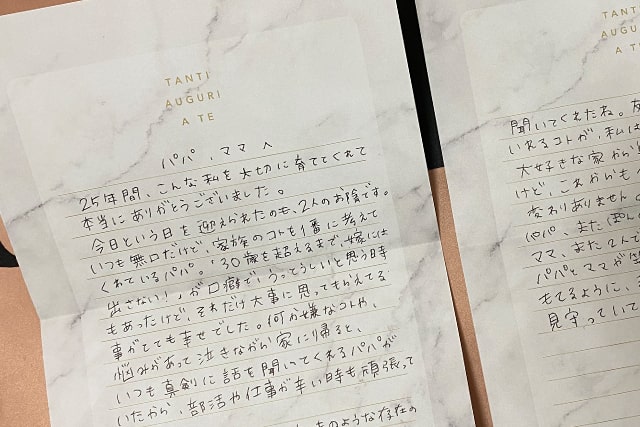 TANTI
AUGURI
A TE
パパ、ママへ
25年間、こんな私を大切に育ててくれて
本当にありがとうございました。
今日という日を迎えられたのも、2人のお陰です。
いつも無口だけど、家族のコトを1番に考えて
くれているパパ。「30歳を超えるまで嫁には
出さない!」が口癖で、うっとうしいと思う時
もあったけど、それだけ大事に思ってもらえてる
事がとても幸せでした。何か嫌なコトや、
悩みがあって泣きながら家に帰ると、
いつも真剣に話を聞いてくれるパパが
いたから、部活や仕事が辛い時も頑張って
のような存在の
TANTI
AUG
A TE
聞いてくれたね。
いれるコトが、私は
大好きな家から
けど、これからも
変わりありません
パパ、また
ママ、また2人で
パパとママが
もてるように、
見守ってい